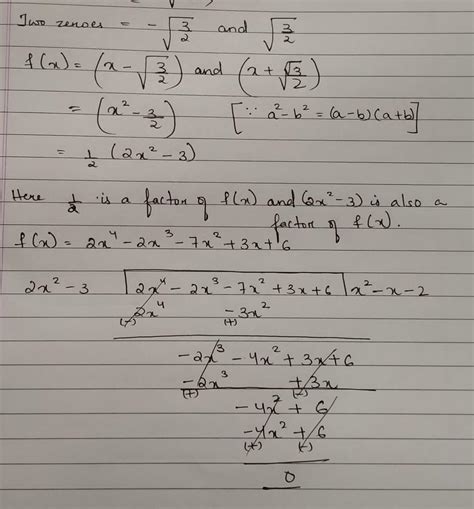 Two zeroes = -√3/2 and √3/2
f(x) = (x - √3/2) and (x + √3/2)
= (x² - 3/2) [∵ a² - b² = (a-b)(a+b)]
= 1/2 (2x² - 3)
Here 1/2 is a factor of f(x) and (2x²-3) is also a
factor of f(x).
f(x) = 2x⁴ - 2x³ - 7x² + 3x + 6
2x² - 3 | 2x⁴ - 2x³ - 7x² + 3x + 6 | x² - x - 2
2x⁴ - 3x²
(-) (+)
-2x³ - 4x² + 3x + 6
-2x³ + 3x
(+) (-)
-4x² + 6
-4x² + 6
(+) (-)
0